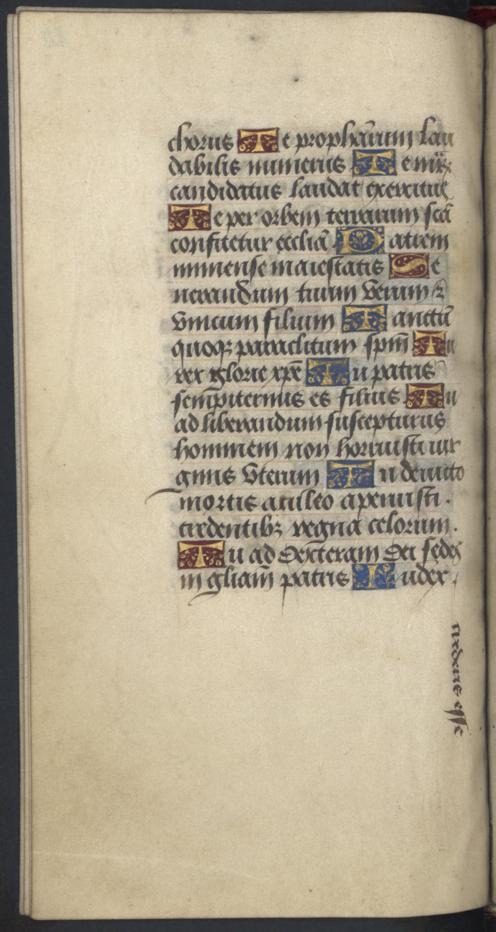 chorus Te propharum lau
dabilis numerus Te mr̃
candidatus laudat exercitus
Te per orbem terrarum scã
confitetur ecclĩa Patrem
immense maiestatis Se
nerandum tuum verum ⁊
vnicum filium Tanctũ
quoqꝫ paraclitum spm̃ Tu
rex glorie xpẽ Tu patris
sempiternus es filius Tu
ad liberandum suscepturus
hominem non horruisti uir
ginis vterum Tu deuicto
mortis aculeo aperuisti .
credentibꝫ regna celorum .
Tu ad dexteram dei sedes
in glĩam patris Iudex .
crederis esse